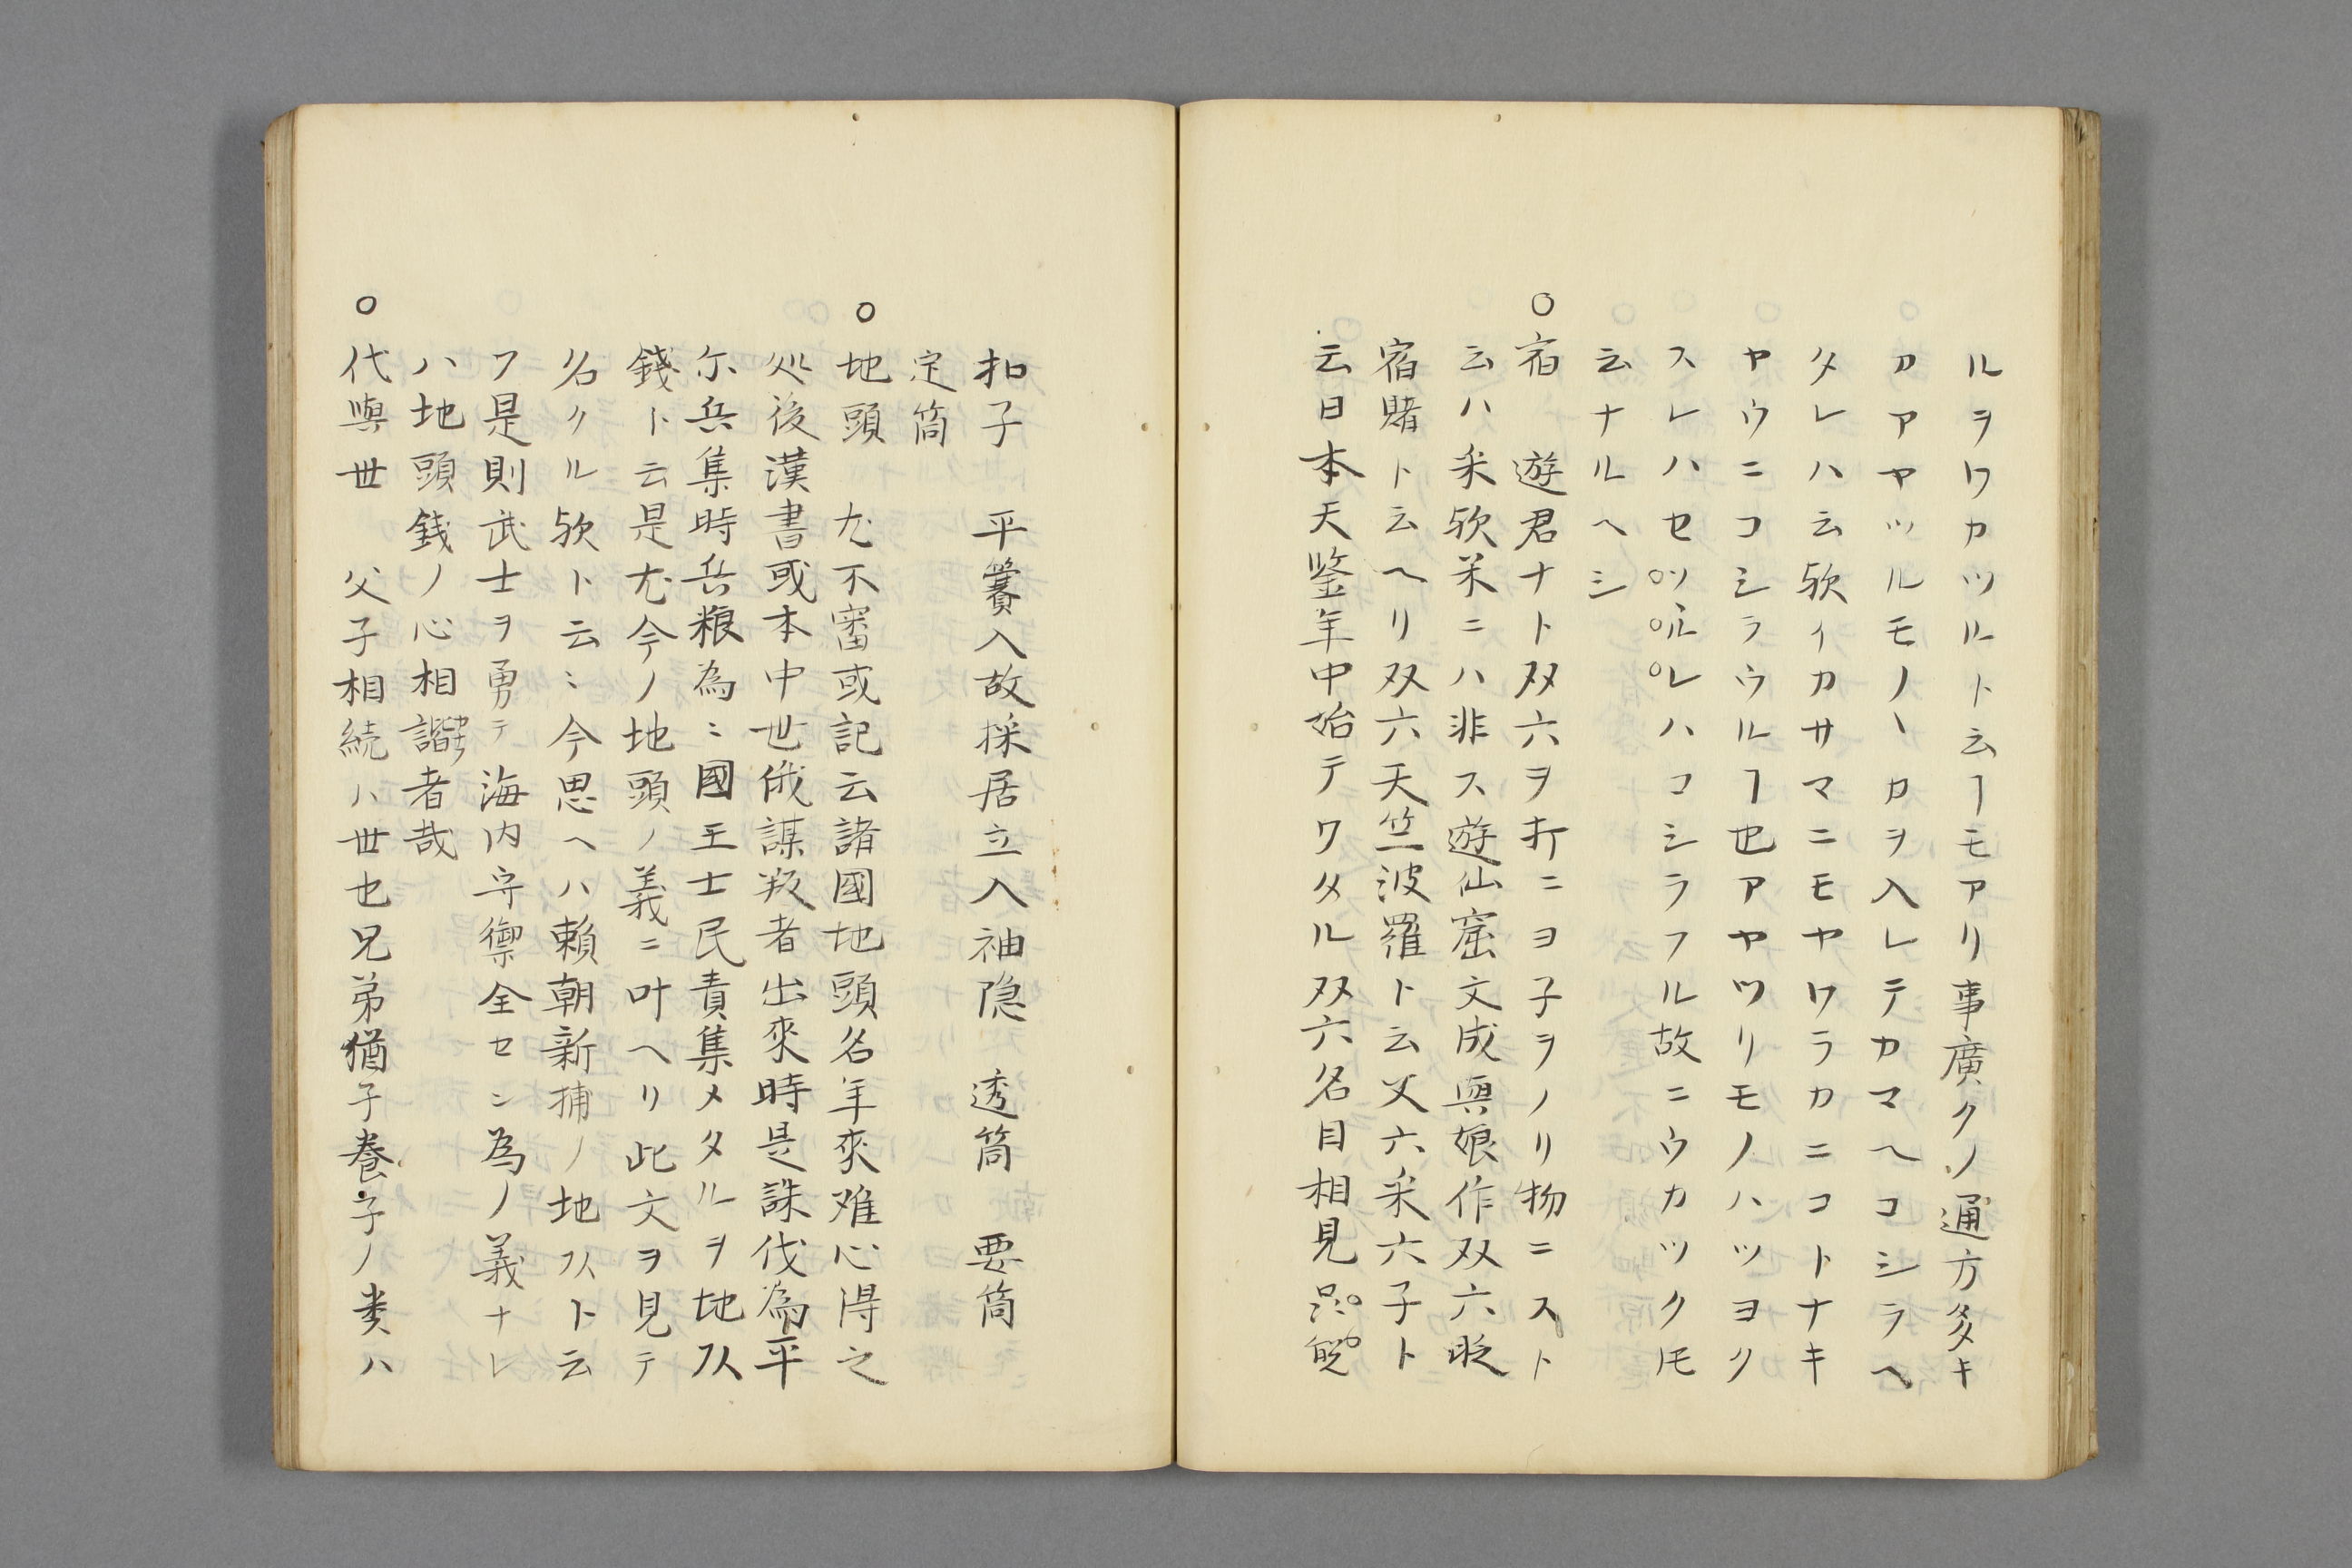 ルヲワカツルト云ヿモアリ事廣クノ通方多キ
カアヤツルモノヽカヲ入レテカマヘコシラヘ
タレハ云欤イカサマニモヤワラカニコトナキ
ヤウニコシラウルヿ也アヤツリモノハツヨク
スレハセツルレハコシラフル故ニウカツクモ
云ナルヘシ
○宿 遊君ナト双六ヲ打ニヨ子ヲノリ物ニスト
云ハ釆欤釆ニハ非ス遊仙窟文成與娘作双六
宿賭ト云ヘリ双六天竺波羅ト云又六釆六子ト
云日本天鑒年中始テワタル双六名目相見
扣子 平簺入故採居立入袖隠 透筒 要筒
定筒
○地頭 尤不審或記云諸國地頭名年來难心得之
処後漢書或本中世俄謀叛者出來時是誅伐為平
尓兵集時兵粮為ニ國王士民責集メタルヲ地以
錢ト云是尤今ノ地頭ノ義ニ叶ヘリ此文ヲ見テ
名クル欤ト云ニ今思ヘハ賴朝新捕ノ地以ト云
フ是則武士ヲ勇テ海内守禦全センニ為ノ義ナレ
ハ地頭錢ノ心相諧者哉
○代與世 父子相続ハ世也兄弟猶子養子ノ类ハ